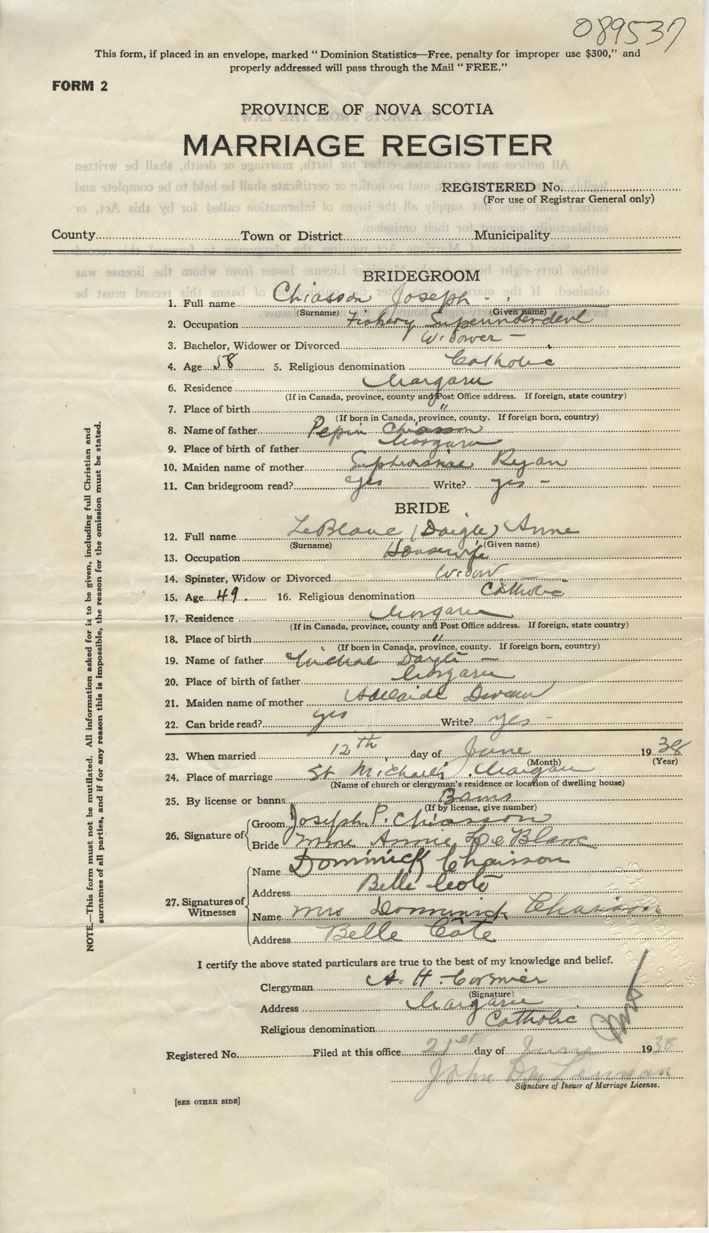 089537
This form, if placed in an envelope, marked "Dominion Statistics—Free, penalty for improper use $300," and
properly addressed will pass through the Mail "FREE."
FORM 2
PROVINCE OF NOVA SCOTIA
MARRIAGE REGISTER
REGISTERED No.
(For use of Registrar General only)
County Town or District Municipality
BRIDEGROOM
1. Full name Chiasson Joseph -
(Surname) (Given name)
2. Occupation Fishery Superintendent
3. Bachelor, Widower or Divorced Widower -
4. Age 58 5. Religious denomination Catholic
6. Residence Margaree
(If in Canada, province, county and Post Office address. If foreign, state country)
7. Place of birth "
(If born in Canada, province, county. If foreign born, country)
8. Name of father Pepin Chiasson
9. Place of birth of father Margaree
10. Maiden name of mother Ryan
11. Can bridegroom read? yes Write? yes -
BRIDE
12. Full name LeBlanc (Daigle) Anne
(Surname) (Given name)
13. Occupation Housewife
14. Spinster, Widow or Divorced Widow
15. Age 49 16. Religious denomination Catholic
17. Residence Margaree
(If in Canada, province, county and Post Office address. If foreign, state country)
18. Place of birth "
(If born in Canada, province, county. If foreign born, country)
19. Name of father -
20. Place of birth of father Margaree
21. Maiden name of mother Adelaide
22. Can bride read? yes Write? yes -
23. When married 12th day of June 1938
(Month) (Year)
24. Place of marriage St Michael's Margaree
(Name of church or clergyman's residence or location of dwelling house)
25. By license or banns Banns
(If by license, give number)
26. Signature of Groom Joseph P. Chiasson
Bride Mme Annie LeBlanc
27. Signatures of Witnesses Name Dominick Chaisson
Address Belle Cote
Name Mrs Dominick Chaisson
Address Belle Cote
I certify the above stated particulars are true to the best of my knowledge and belief.
Clergyman A. H. Cormier
(Signature)
Address Margaree
Religious denomination Catholic
Registered No. Filed at this office 21st day of June 1938
John
Signature of Issuer of Marriage License.
[SEE OTHER SIDE]
NOTE.—This form must not be mutilated. All information asked for is to be given, including full Christian and
surnames of all parties, and if for any reason this is impossible, the reason for the omission must be stated.